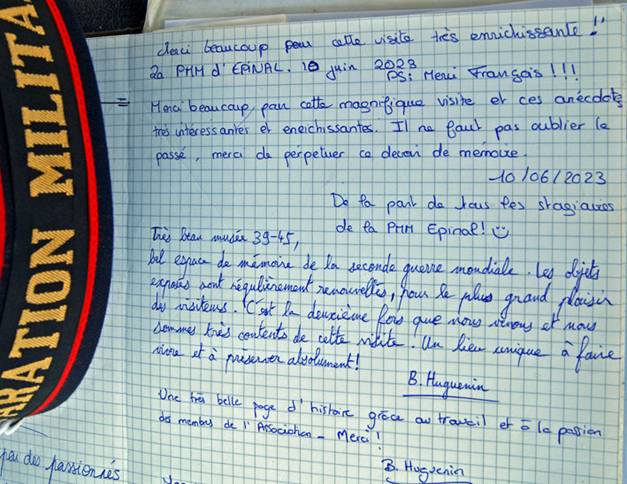 Merci beaucoup pour cette visite très enrichissante !!
La PMM d'EPINAL. 10 juin 2023
PS: Merci Français !!!
Merci beaucoup, pour cette magnifique visite et ces anecdotes
très intéressantes et enrichissantes. Il ne faut pas oublier le
passé, merci de perpétuer ce devoir de mémoire.
10/06/2023
De la part de tous les stagiaires
de la PMM Epinal! ☺
Très beau musée 39-45,
bel espace de mémoire de la seconde guerre mondiale. Les objets
exposés sont régulièrement renouvellés, pour le plus grand plaisir
des visiteurs. C'est la deuxième fois que nous venons et nous
sommes très contents de cette visite. Un lieu unique à faire
vivre et à préserver absolument!
B. Huguenin
Une très belle page d'histoire grâce au travail et à la passion
des membres de l'Association - Merci!
B. Huguenin
par des passionnés
ARATION MILITA